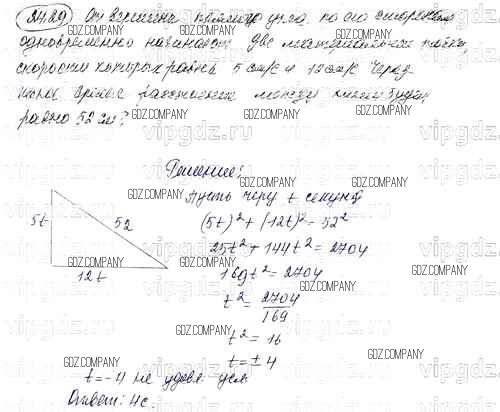 24.29) От вершины прямого угла по его сторонам
одновременно начинают две материальные точки,
скорости которых равны 5 см/с и 12 см/с. Через
какое время расстояние между ними будет
равно 52 см?
Решение:
Пусть через t секунд
(5t)² + (12t)² = 52²
5t
52
12t
25t² + 144t² = 2704
169t² = 2704
t² = 2704/169
t² = 16
t = ± 4
t = -4 не удовл. усл.
Ответ: 4с.
GDZ.COMPANY
vipgdz.ru